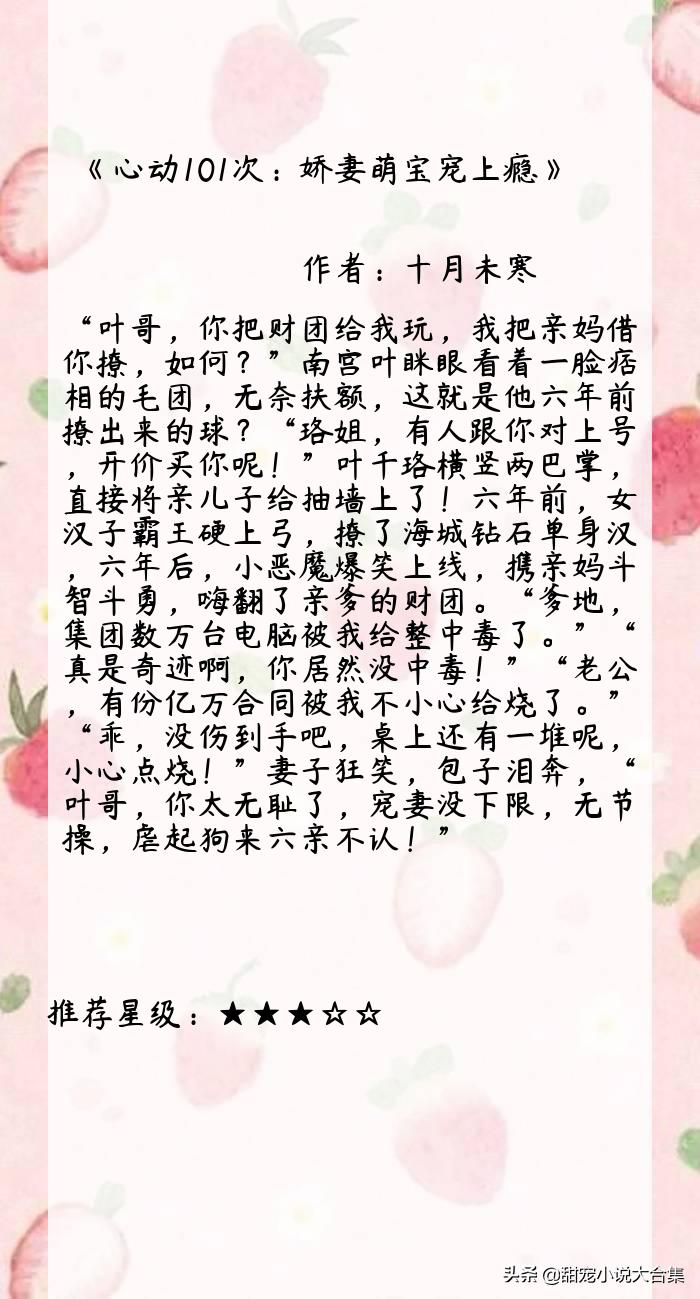 《心动101次：娇妻萌宝宠上瘾》
作者：十月未寒
“叶哥，你把财团给我玩，我把亲妈借
你撩，如何？”南宫叶眯眼看着一脸痞
相的毛团，无奈扶额，这就是他六年前
撩出来的球？“珞姐，有人跟你对上号
，开价买你呢！”叶千珞横竖两巴掌，
直接将亲儿子给抽墙上了！六年前，女
汉子霸王硬上弓，撩了海城钻石单身汉
，六年后，小恶魔爆笑上线，携亲妈斗
智斗勇，嗨翻了亲爹的财团。“爹地，
集团数万台电脑被我给整中毒了。”“
真是奇迹啊，你居然没中毒！”“老公
，有份亿万合同被我不小心给烧了。”
“乖，没伤到手吧，桌上还有一堆呢，
小心点烧！”妻子狂笑，包子泪奔，“
叶哥，你太无耻了，宠妻没下限，无节
操，虐起狗来六亲不认！”
推荐星级：★★★☆☆
头条 @甜宠小说大合集